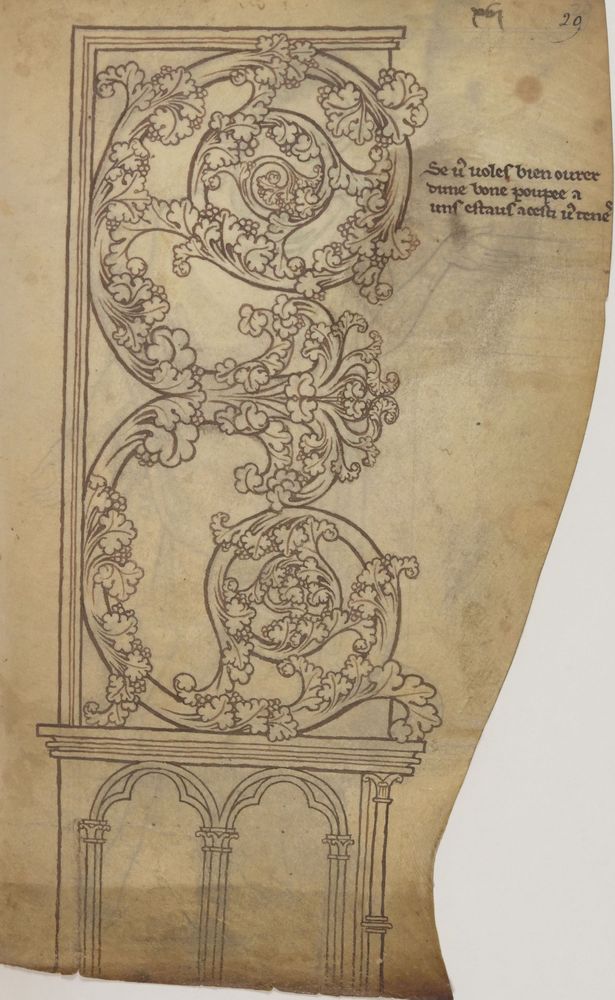 xvi
29
Se vͬ voles bien ovrer
dune bone poupee a
uns estaus a cesti vͬ tenes